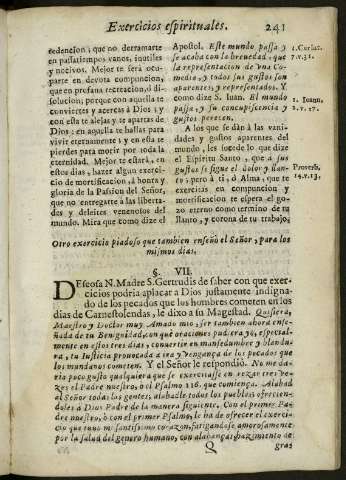 Exercicios espirituales. 241
redencion; que no derramarte
en passatiempos vanos, inutiles
y nocivos. Mejor te será ocu-
parte en devota compuncion,
que en profana recreacion, ó di-
solucion; porque con aquella te
conviertes y acercas à Dios: y
con esta te alejas y te apartas de
Dios: en aquella te hallas para
vivir eternamente; y en esta te
pierdes para morir por toda la
eternidad. Mejor te estará, en
estos dias, hazer algun exerci-
cio de mortificacion, à honra y
gloria de la Passion del Señor,
que no entregarte à las liberta-
des y deleites venenosos del
mundo. Mira que como dize el
Apostol. Este mundo passa y
se acaba con la brevedad, que
la representacion de vna Co-
media, y todos sus gustos son
aparentes, y representados. Y
como dize S. Iuan. El mundo
passa, y su concupiscencia y
gustos perecen.
A los que se dàn à las vani-
dades y gustos aparentes del
mundo, les sucede lo que dize
el Espiritu Santo, que à sus
gustos se sigue el dolor y llan-
to; pero à ti, ó Alma, que te
exercitas en compuncion y
mortificacion te espera el go-
zo eterno como termino de tu
llanto, y corona de tu trabajo.
7. v. 31.
1. Ioann.
2. v. 17.
Proverb.
14. v. 13.
Otro exercicio piadoso que tambien enseñó el Señor, para los
mismos dias.
§. VII.
Deseosa N. Madre S. Gertrudis de saber con que exer-
cicios podria aplacar a Dios justamente indigna-
do de los pecados que los hombres cometen en los
dias de Carnestolendas, le dixo a su Magestad. Quisiera,
Maestro y Doctor muy Amado mio, ser tambien ahora ense-
ñada de tu Benignidad, con què oraciones podrera yo, especial-
mente en estos tres dias, convertir en mansedumbre y blandu-
ra, tu Iusticia provocada à ira y venganza de los pecados que
los mundanos cometen. Y el Señor le respondiò. No me da-
ria poco gusto qualquiera que se exercitasse en rezar tres ve-
zes el Padre nuestro, ó el Psalmo 116. que comienza. Alabad
al Señor todas las gentes; alabadle todos los pueblos ofrecien-
doles à Dios Padre de la manera siguiente. Con el primer Pa-
dre nuestro, ò con el primer Psalmo, le ha de ofrecer el exerci-
cio que tuvo mi santissimo corazon, fatigandose, amorosamente
por la salud del genero humano, con alabanzas, hazimiento de
Q gra-